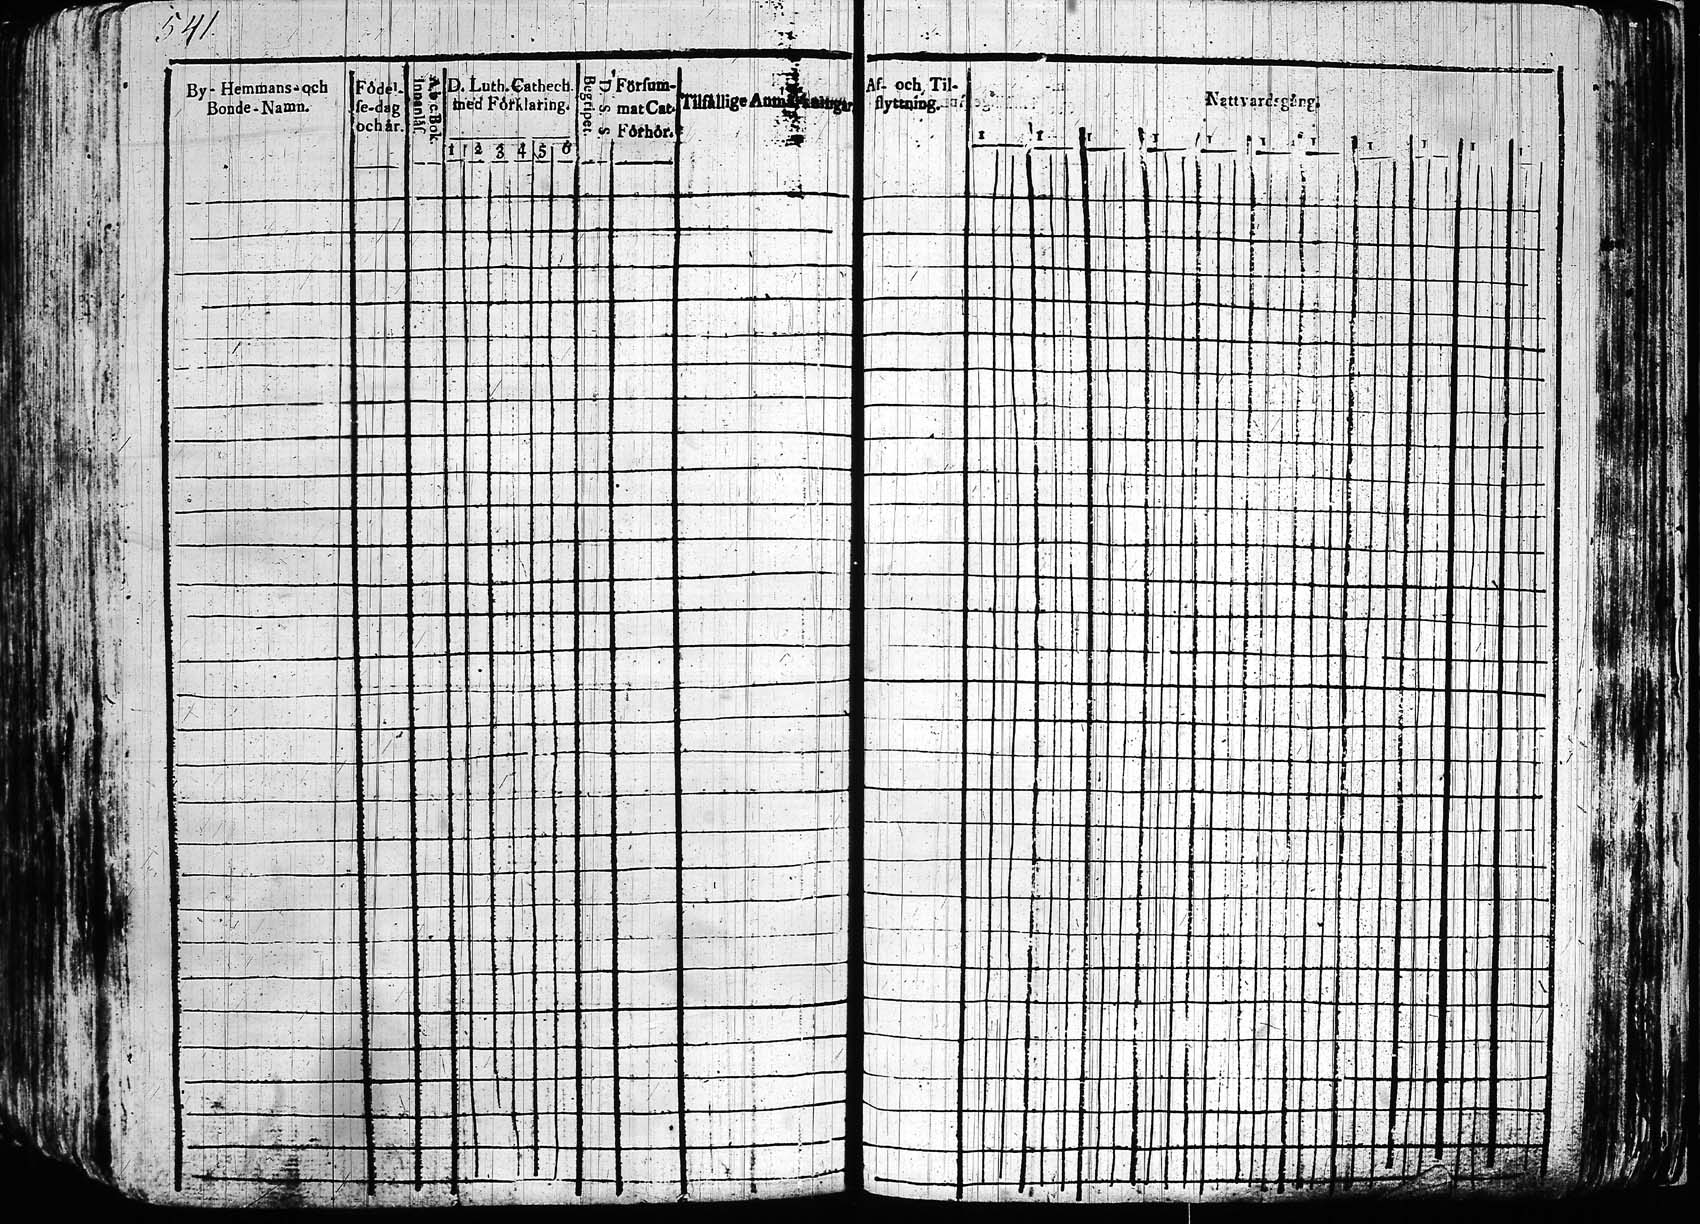 541.
By-Hemmans-och
Bonde-Namn.
Födel-
se-dag
och år.
Abc Bok.
Innanläs.
D. Luth. Cathech.
med Förklaring.
1 2 3 4 5 6
Begripet
D. S. S.
Försum-
mat Cat.
Förhör.
Tilfällige Anmärkningar
Af- och Til-
flyttning.
Nattvardsgång.
1 1 1 1 1 1 1 1 1 1 1